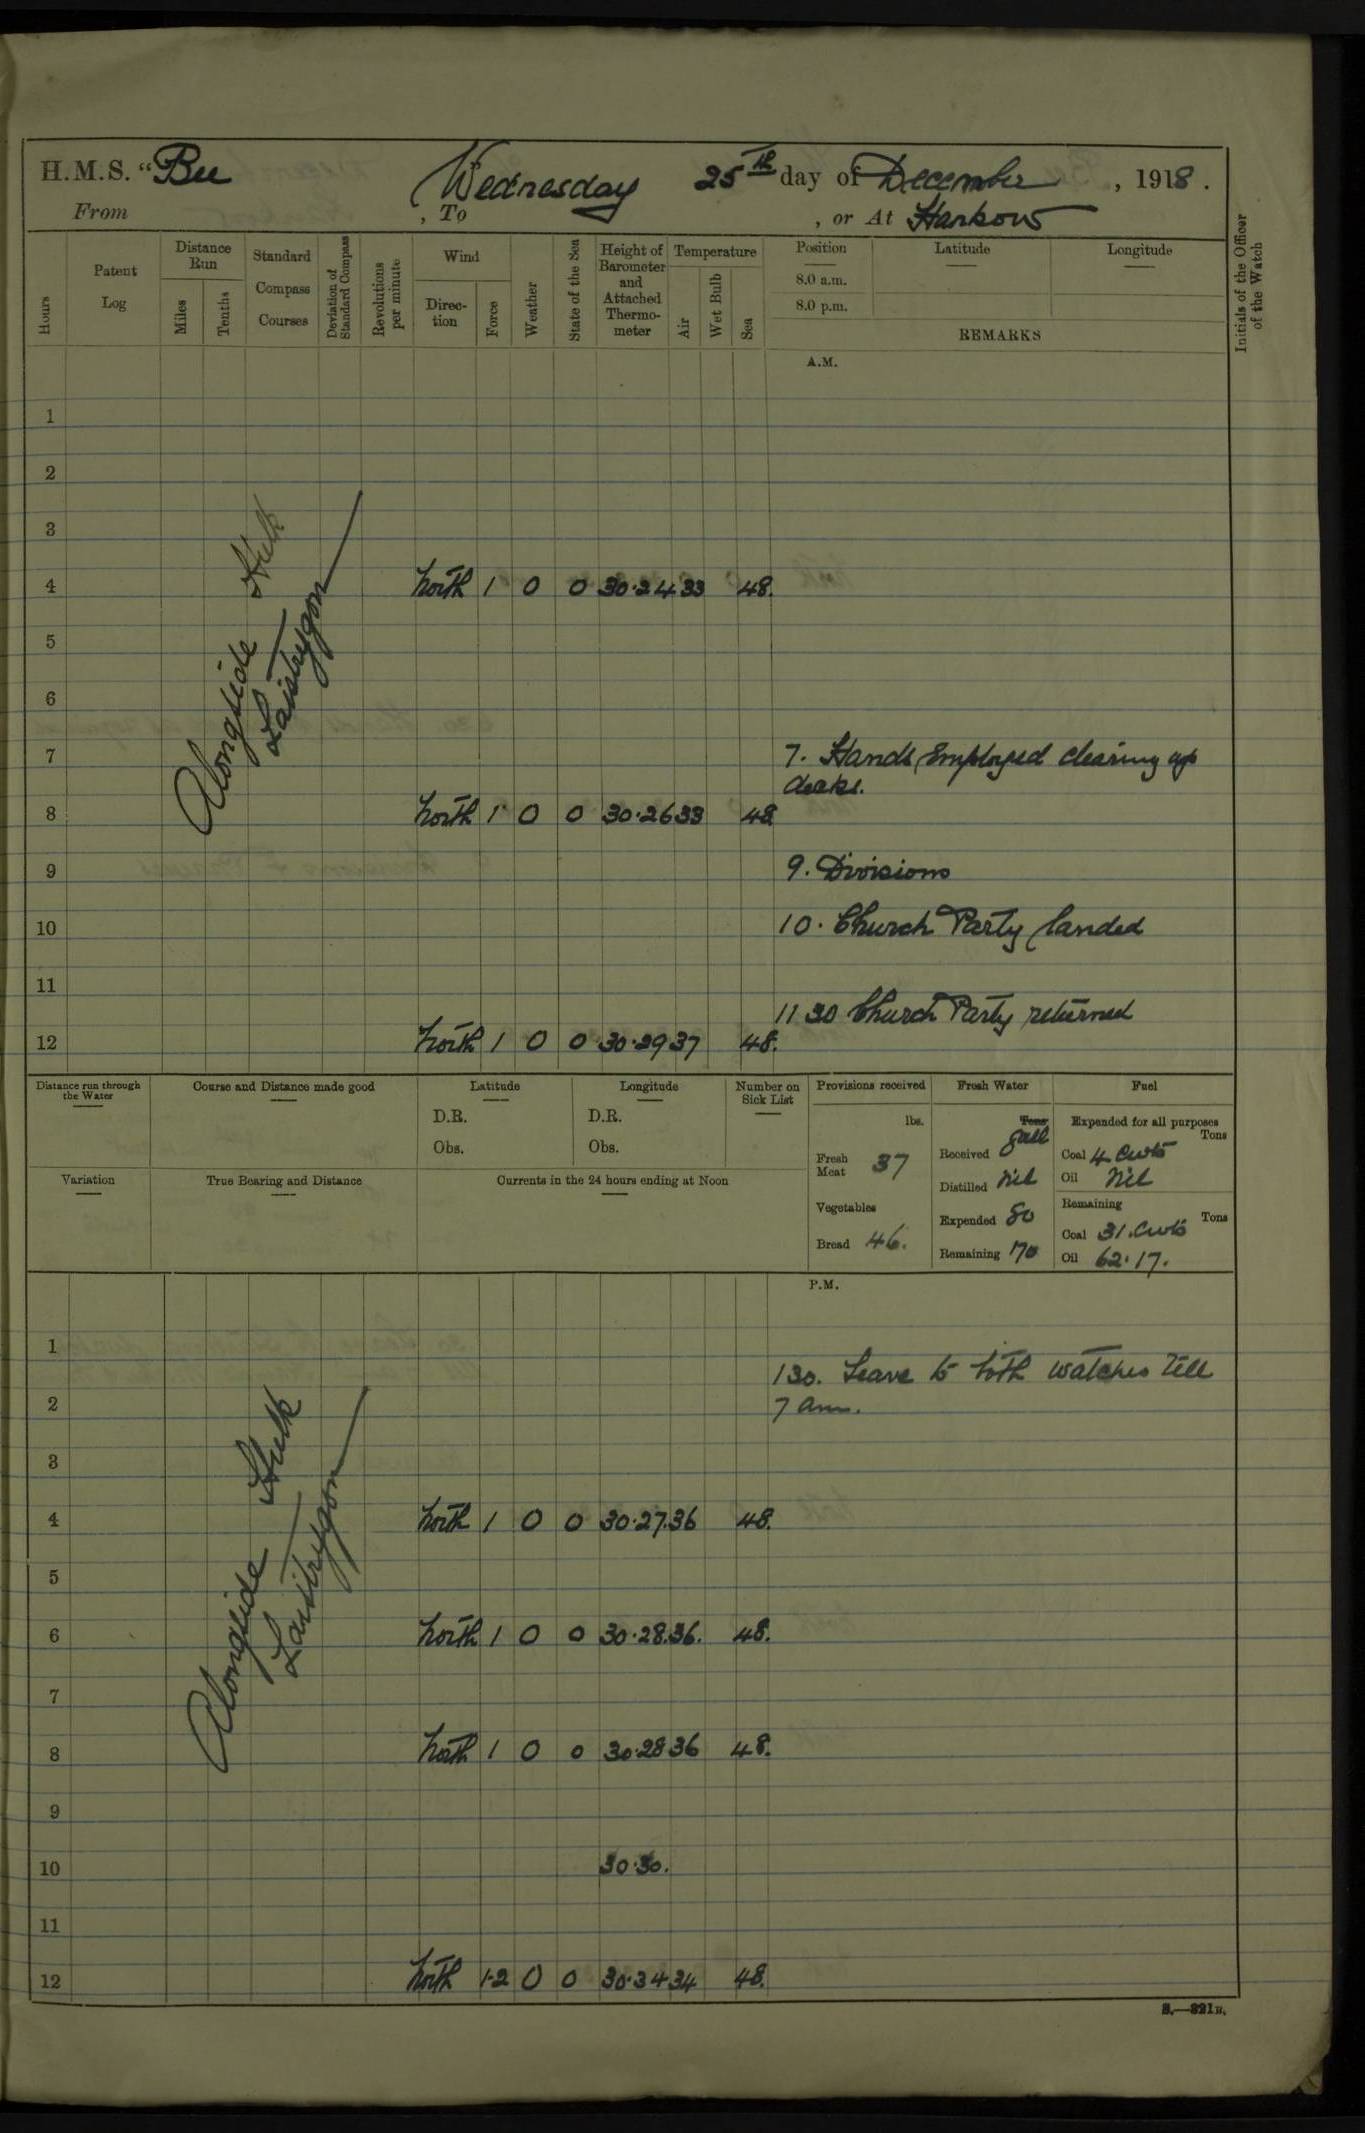 H.M.S. “Bee Wednesday 25th day of December, 1918.
From , To , or At Hankow
Hours
Patent Log
Distance Run
Miles
Tenths
Standard Compass Courses
Deviation of Standard Compass
Revolutions per minute
Wind
Direction
Force
Weather
State of the Sea
Height of Barometer and Attached Thermometer
Temperature
Air
Wet Bulb
Sea
Position Latitude Longitude
8.0 a.m.
8.0 p.m.
REMARKS
Initials of the Officer of the Watch
A.M.
1
2
3
4 North 1 0 0 30.24 33 48.
5
6
Alongside Hulk
Laistrygon
7 7. Hands Employed clearing up
decks.
8 North 1 0 0 30.26 33 48
9 9. Divisions
10 10. Church Party landed
11
11 30 Church Party returned
12 North 1 0 0 30.29 37 48.
Distance run through the Water
Course and Distance made good
Latitude
D.R.
Obs.
Longitude
D.R.
Obs.
Number on Sick List
Variation
True Bearing and Distance
Currents in the 24 hours ending at Noon
Provisions received
lbs.
Fresh Meat 37
Vegetables
Bread 46.
Fresh Water
Tons
Gall
Received
Distilled Nil
Expended 80
Remaining 170
Fuel
Expended for all purposes
Tons
Coal 4 cwts
Oil Nil
Remaining
Tons
Coal 31. cwts
Oil 62.17.
P.M.
1
130. Leave to both watches till
2 7 am.
3
4 North 1 0 0 30.27. 36 48.
5
Alongside Hulk
Laistrygon
6 North 1 0 0 30.28. 36. 48.
7
8 North 1 0 0 30.28 36 48.
9
10 30.30.
11
12 North 1.2 0 0 30.34 34 48.
S.—321B.